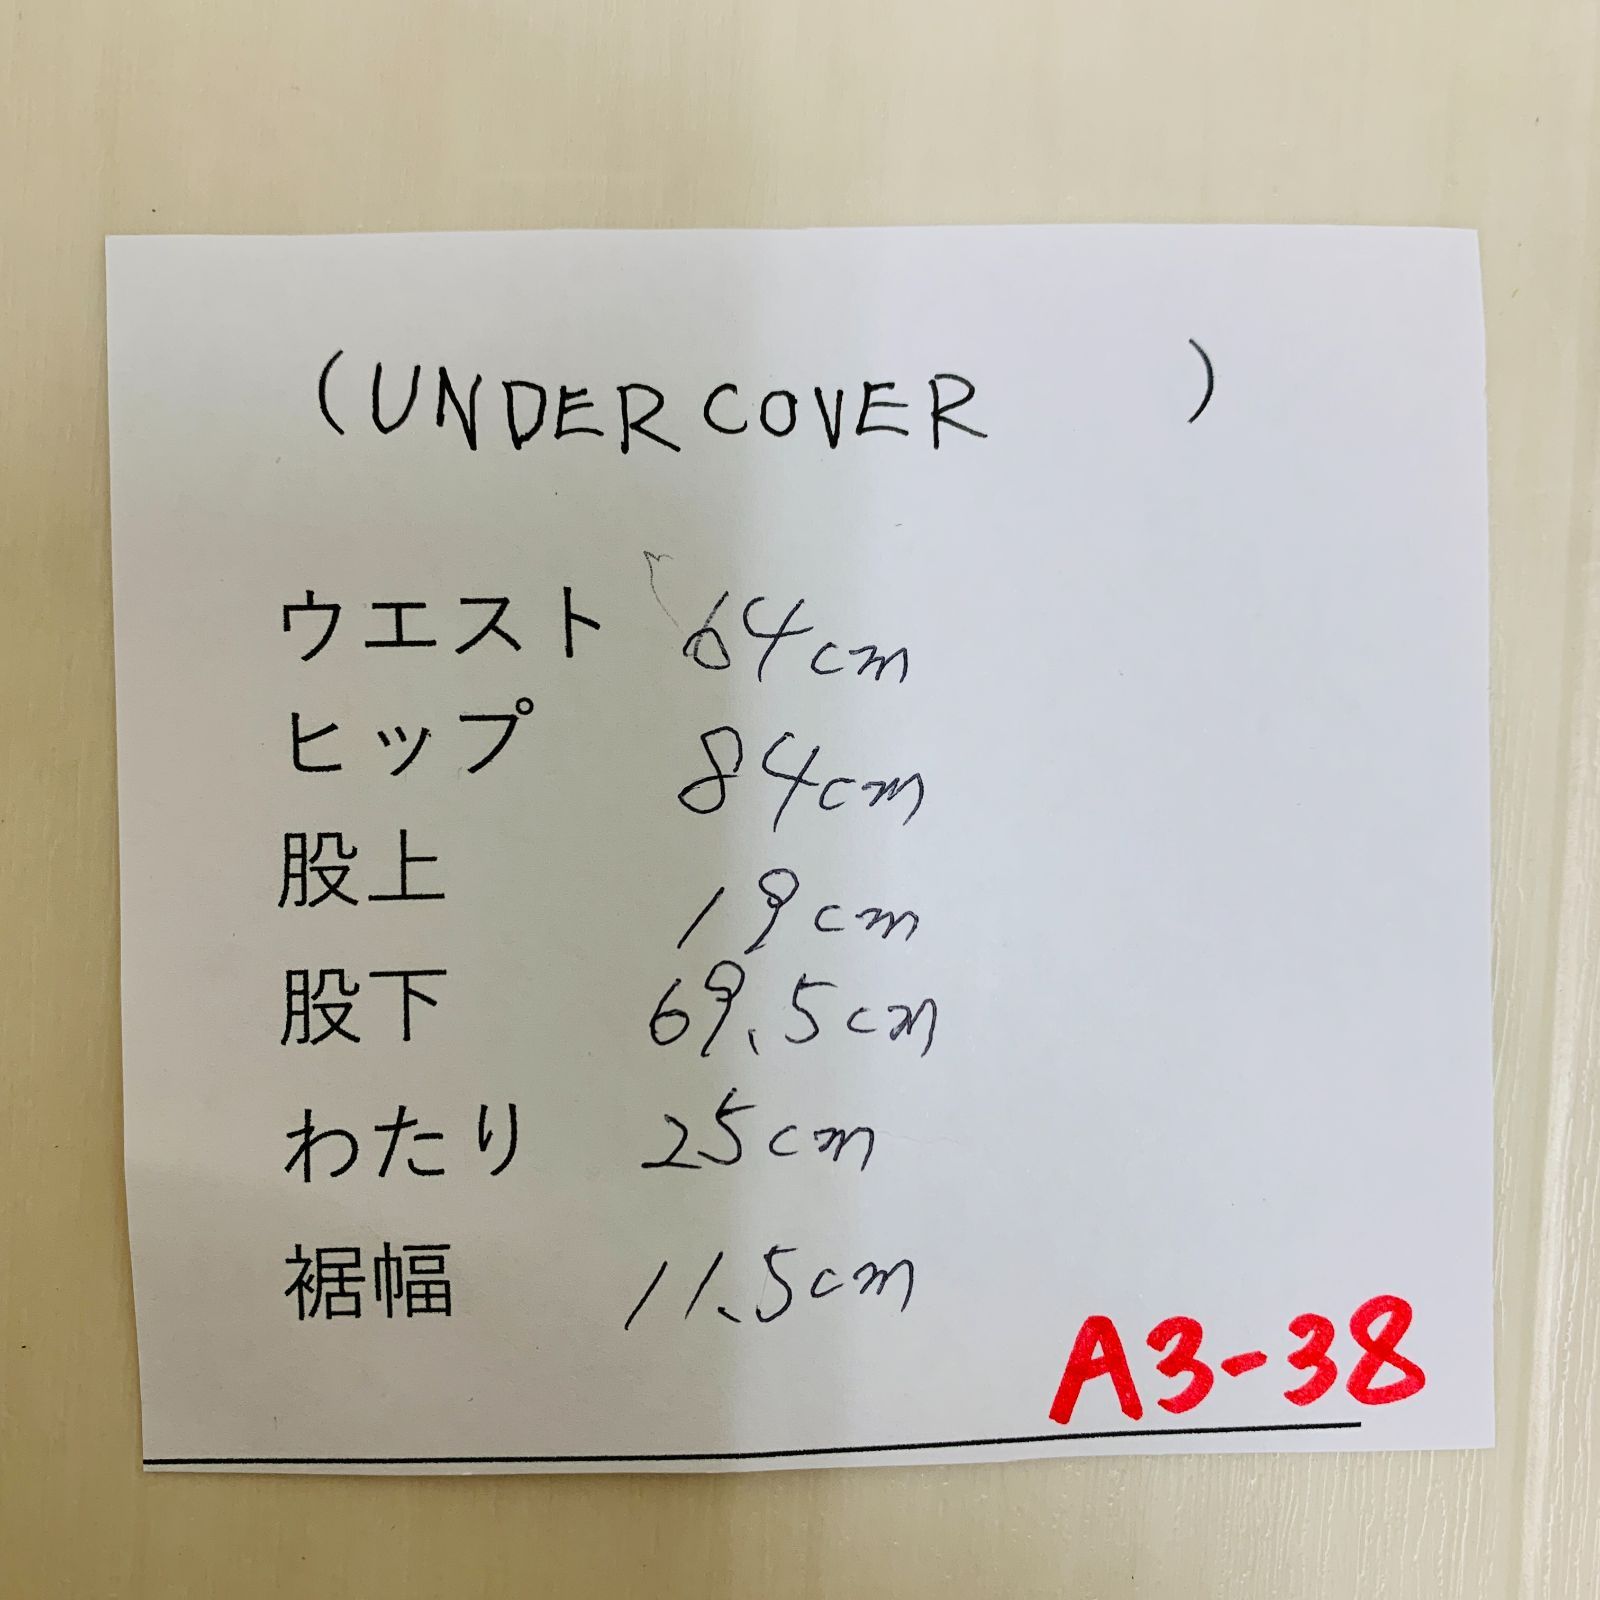 (UNDERCOVER )
ウエスト 64cm
ヒップ 84cm
股上 19cm
股下 69.5cm
わたり 25cm
裾幅 11.5cm
A3-38